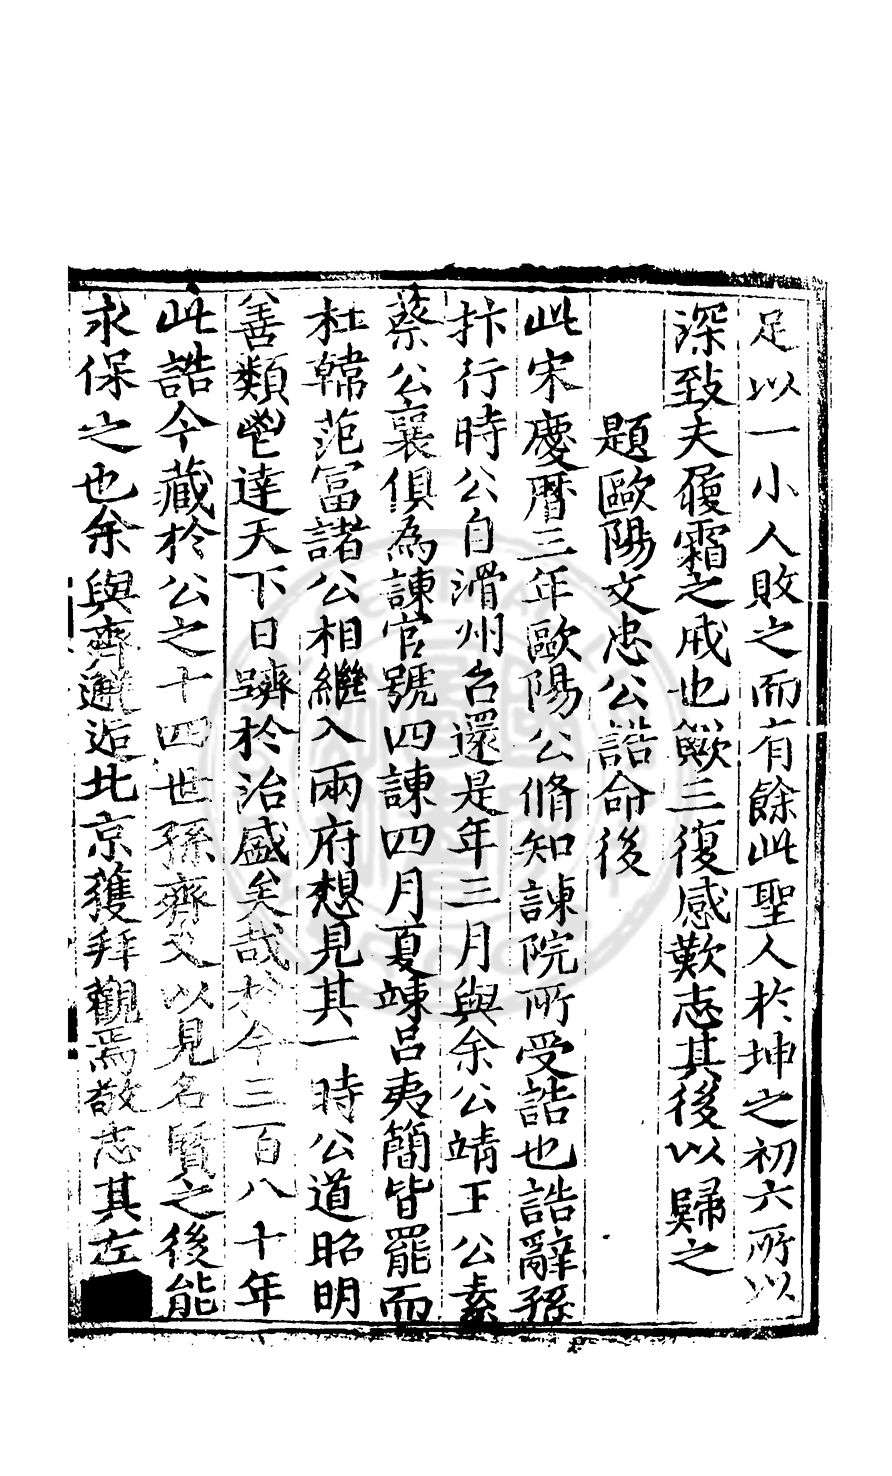 足以一小人敗之而有餘此聖人於坤之初六所以
深致夫履霜之戒也歟三復感歎志其後以歸之
題歐陽文忠公誥命後
此宋慶曆三年歐陽公脩知諫院所受誥也誥辭孫
抃行時公自滑州召還是年三月與余公靖王公素
蔡公襄俱為諫官號四諫四月夏竦呂夷簡皆罷而
杜韓范冨諸公相繼入兩府想見其一時公道昭明
善類鬯達天下日躋於治盛矣哉於今三百八十年
此誥今藏於公之十四世孫齊又以見名賢之後能
永保之也余與齊邂逅北京獲拜觀焉敬志其左